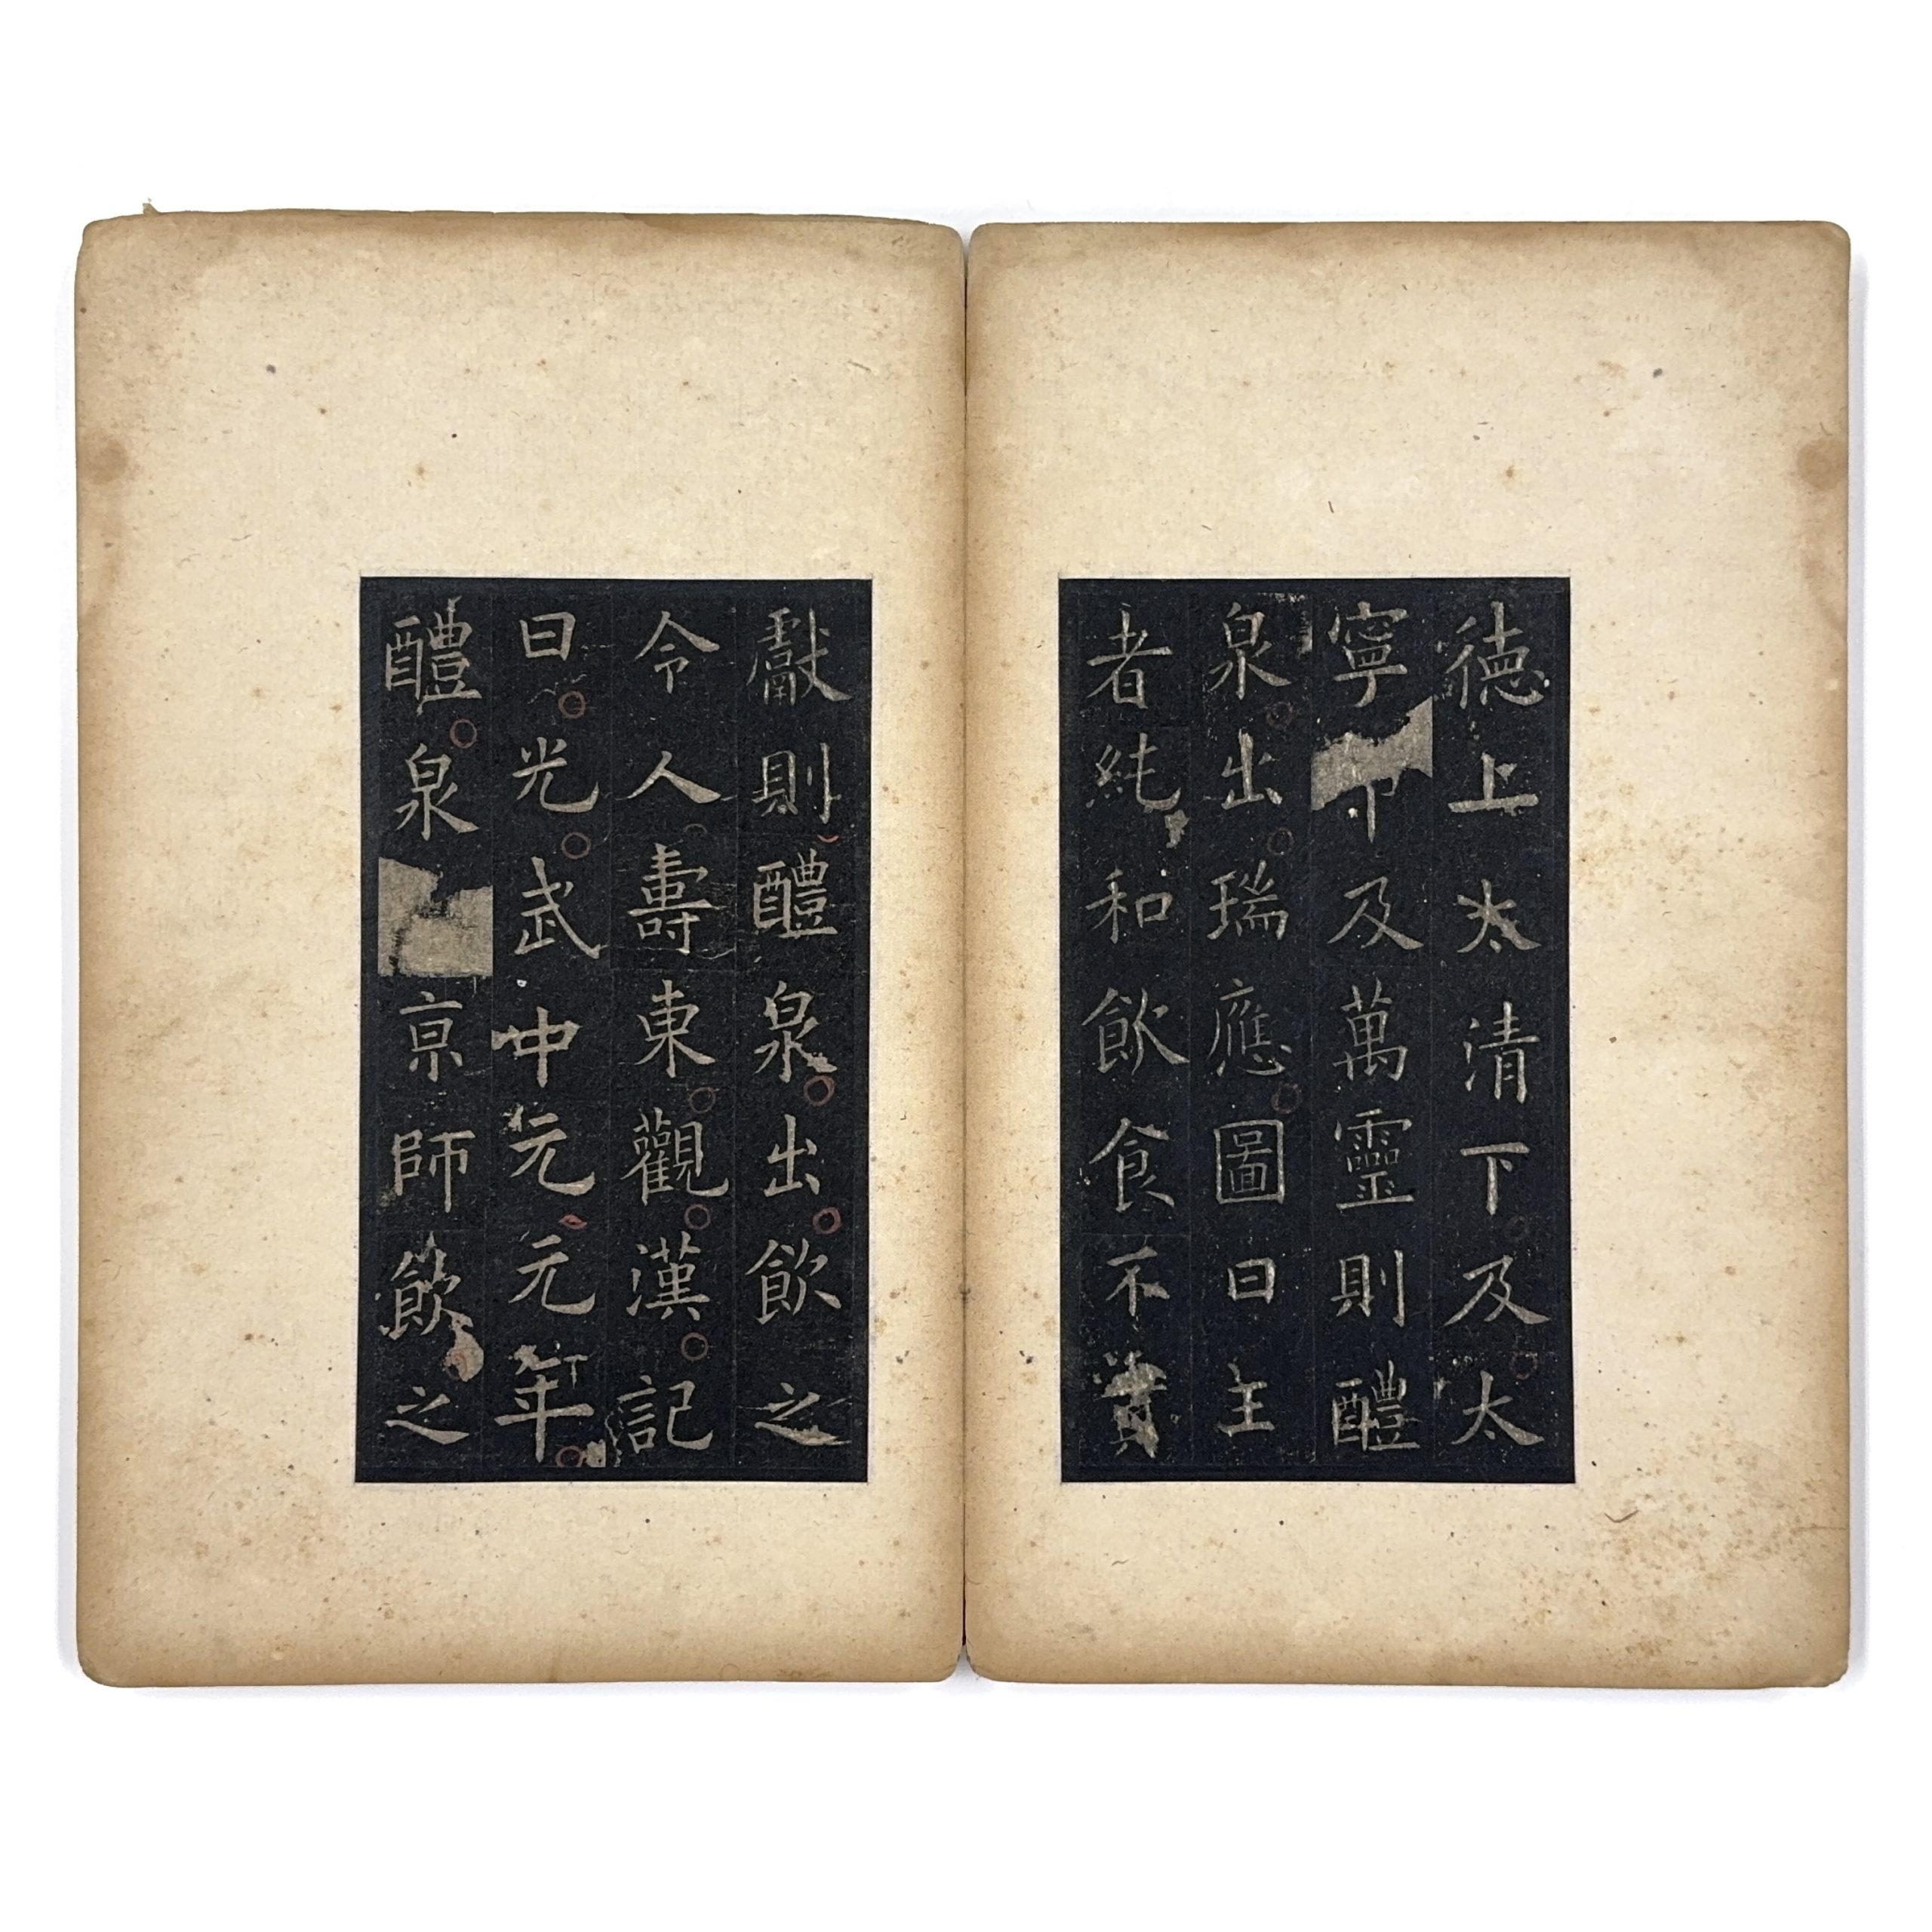 德上太清下及太
寧中及萬靈則醴
泉出瑞應圖曰王
者純和飲食不貢
獻則醴泉出飲之
令人壽東觀漢記
曰光武中元元年
醴泉京師飲之